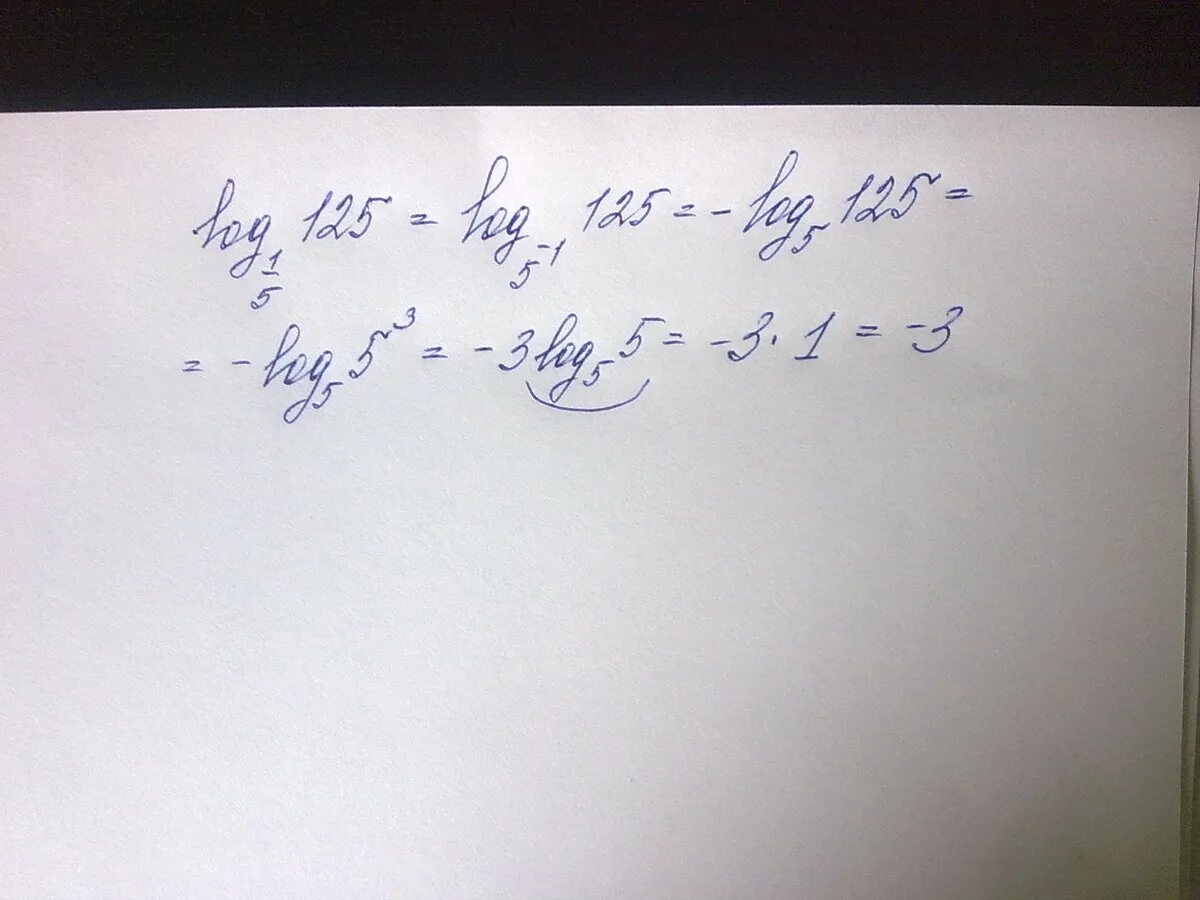 log_{1/5} 125 = log_{5^{-1}} 125 = - log_5 125 =
= - log_5 5^3 = -3 log_5 5 = -3 · 1 = -3